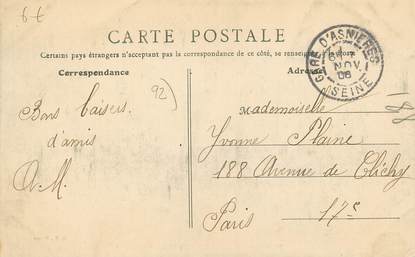 6€
CARTE POSTALE
Certains pays étrangers n'acceptant pas la correspondance de ce côté, se renseigner
Correspondance
Adresse
GARE D'ASNIERES
NOV.
06
SEINE
92)
Bons baisers
d'amis
A. M.
Mademoiselle
Yvonne Plaine
188 Avenue de Clichy
Paris 17e